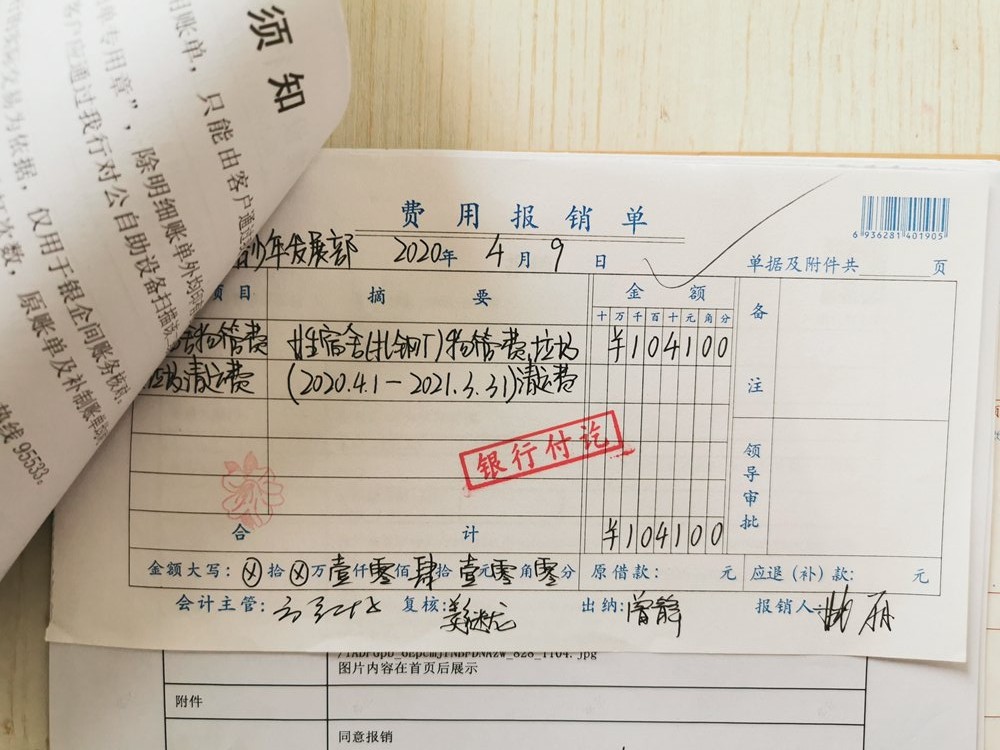 须知
账单，只能由客户通
单专用章”，除明细账单外均
客户应通过我行对公自助设备扫描
交易为依据，仅用于银企间账务核对，
次数，原账单及补制账单
热线 95533。
费用报销单
6 936281 401905
少年发展部 2020年 4月 9日
单据及附件共 页
项目 摘要 金额 备注
十万千百十元角分
舍物管费 宿舍(轧钢厂)物管费,垃圾 ¥104100
垃圾清运费 (2020.4.1-2021.3.31)清运费
领导审批
银行付讫
合计 ¥104100
金额大写：ⓧ拾ⓧ万壹仟零佰肆拾壹元零角零分 原借款： 元 应退（补）款： 元
会计主管： 复核： 出纳：曾静 报销人：
828_1104.jpg
图片内容在首页后展示
附件
同意报销